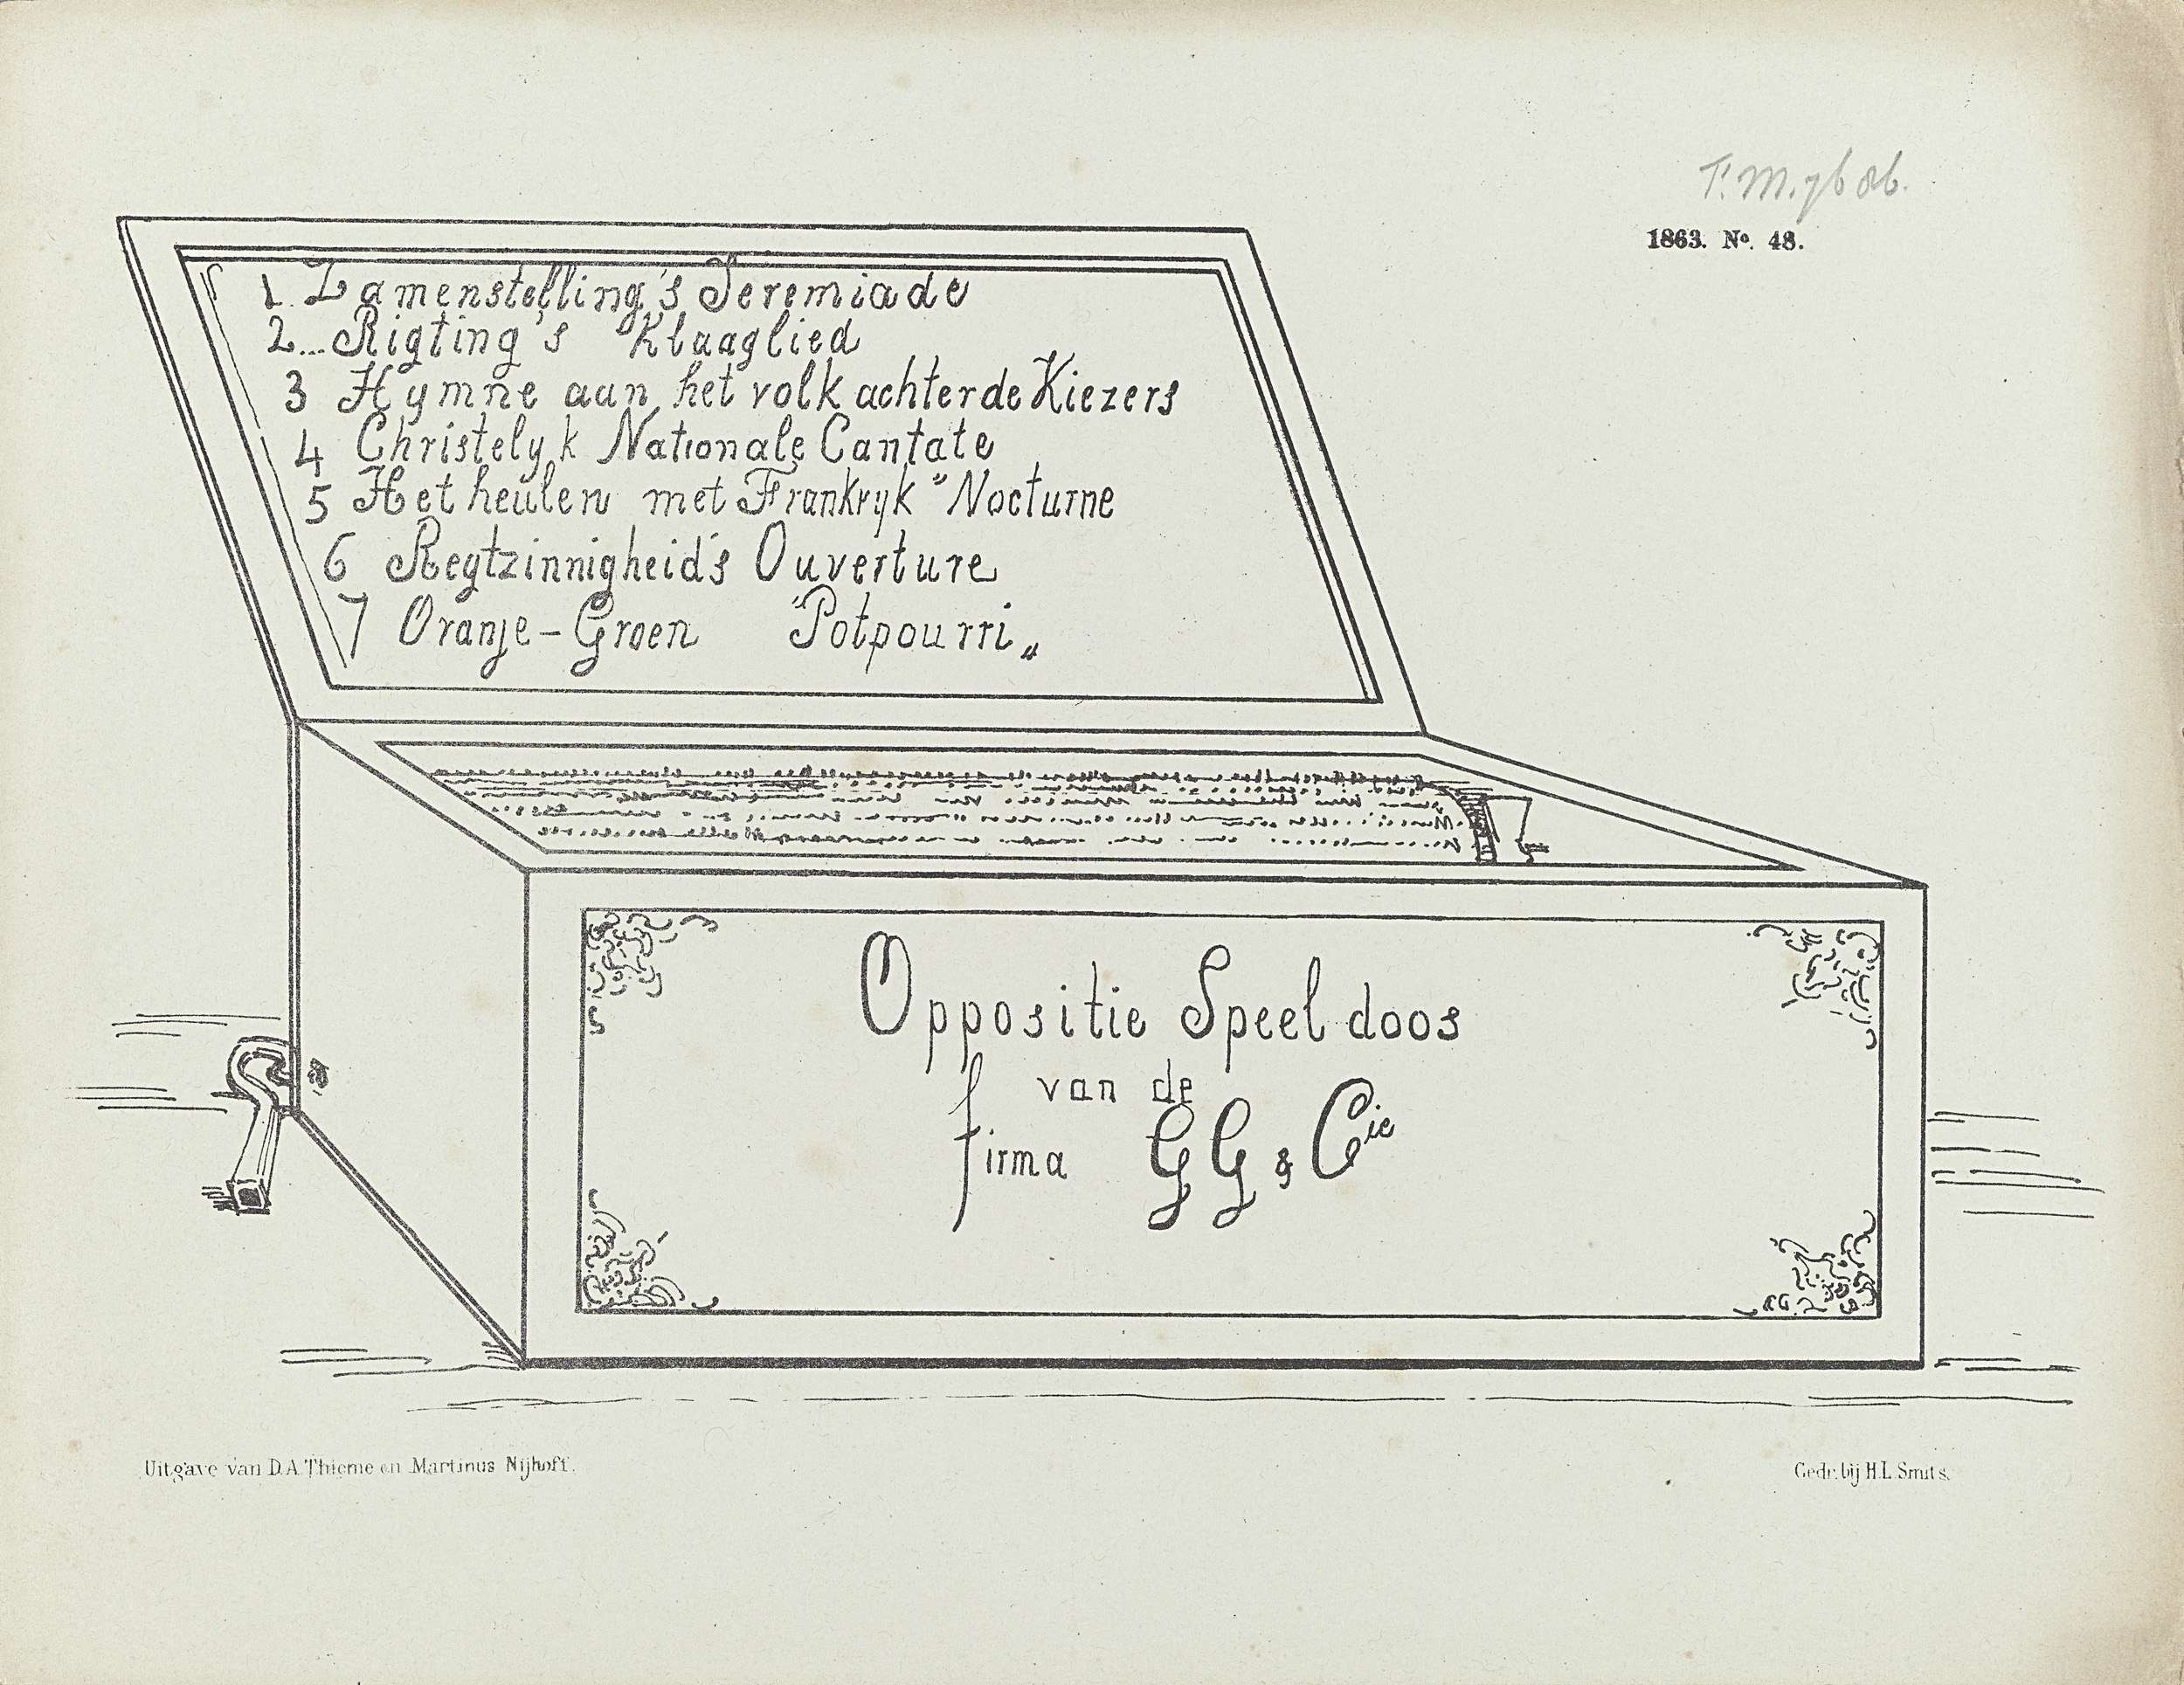 F. M. 7686.
1863. No. 48.
1. Zamenstelling's Jeremiade
2... Rigting's Klaaglied
3 Hymne aan het volk achter de Kiezers
4 Christelyk Nationale Cantate
5 Het heulen met Frankryk "Nocturne
6 Regtzinnigheid's Ouverture
7 Oranje-Groen "Potpourri„
Oppositie Speel doos
van de
firma GG & Cie
Uitgave van D.A. Thieme en Martinus Nijhoff.
Gedr. bij H.L. Smits.